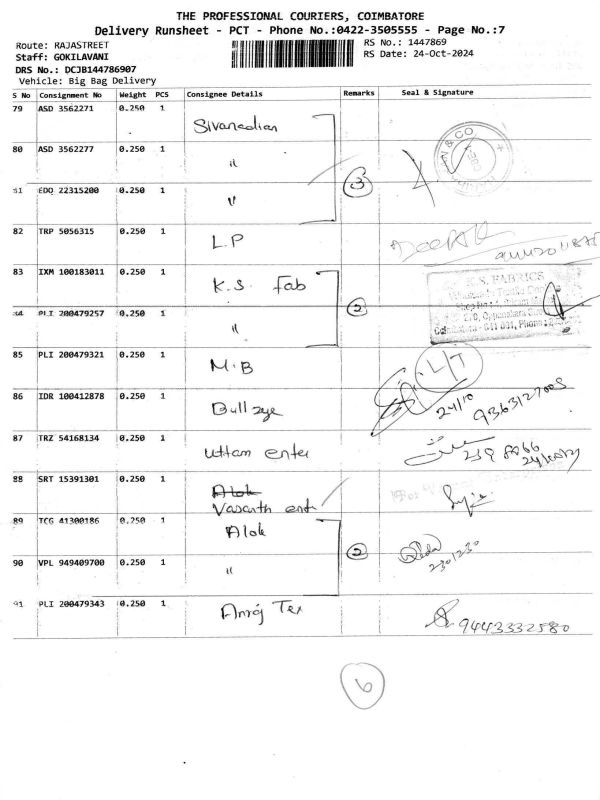 THE PROFESSIONAL COURIERS, COIMBATORE
Delivery Runsheet - PCT - Phone No.:0422-3505555 - Page No.:7
Route: RAJASTREET
RS No.: 1447869
Staff: GOKILAVANI
RS Date: 24-Oct-2024
DRS No.: DCJB144786907
Vehicle: Big Bag Delivery
S No Consignment No Weight PCS Consignee Details Remarks Seal & Signature
79 ASD 3562271 0.250 1
80 ASD 3562277 0.250 1 "
81 EDO 22315200 0.250 1 " 3
82 TRP 5056315 0.250 1 L.P
83 IXM 100183011 0.250 1 K.S. Fab
K.S. FABRICS
84 PLI 200479257 0.250 1 " 2
85 PLI 200479321 0.250 1 M.B
L/T
86 IDR 100412878 0.250 1 Bull eye
24/10
87 TRZ 54168134 0.250 1 Uttam enter
88 SRT 15391301 0.250 1 Alok
Vasanth ent
89 TCG 41300186 0.250 1 Alok
90 VPL 949409700 0.250 1 " 2
2301230
91 PLI 200479343 0.250 1 Tex
9443332580
6